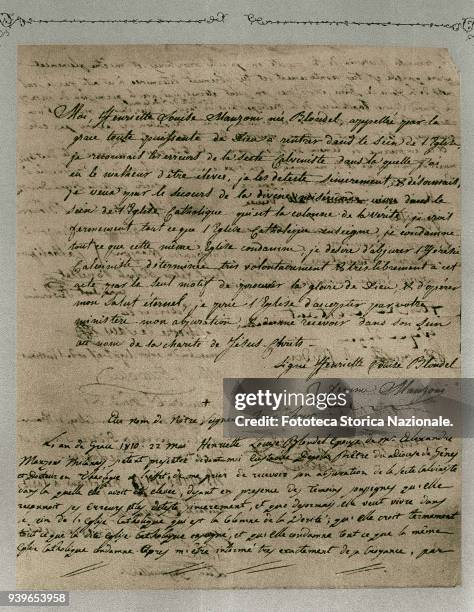 Moi, Henriette Louise Manzoni née Blondel, appellée par la
grace toute puissante de Dieu à rentrer dans le sein de l'Eglise
je reconnais les erreurs de la Secte Calviniste dans la quelle j'ai
eu le malheur d'être élevée, je les deteste sincerement, & désormais
je veux par le secours de la divine misericorde vivre dans le
sein de l'Eglise Catholique qui est la colonne de la verité, je crois
fermement tout ce que l'Eglise Catholique enseigne, je condamne
tout ce que cette même Eglise condamne, je desire d'abjurer l'Heresie
Calviniste determinée très volontairement & très librement à cet
acte par le seul motif de procurer la gloire de Dieu & d'operer
mon Salut eternel, je prie l'Eglise d'accepter par votre
ministère mon abjuration & de me recevoir dans son sein
au nom de la charité de Jesus Christ.
Signé Henriette Louise Blondel
Femme Manzoni
Au nom de Nôtre Seigneur
L'an de Grace 1810. 22 mai Henriette Louise Blondel Epouse de Mr. Alexandre
Manzoni prêtre du diocese de Gênes
de recevoir son abjuration de la secte calviniste
dans la quelle elle avoit été élevée, ayant en presence des temoins qu'elle
reconnoit ses erreurs, les deteste sincerement, et que desormais elle veut vivre dans
le sein de l'Eglise Catholique qui est la colonne de la Verité; qu'elle croit fermement
tout ce que la dite Eglise Catholique enseigne, et qu'elle condamne tout ce que la même
Eglise Catholique condamne. Après m'être informé très exactement de sa croyance, par
gettyimages
Fototeca Storica Nazionale.
939653958